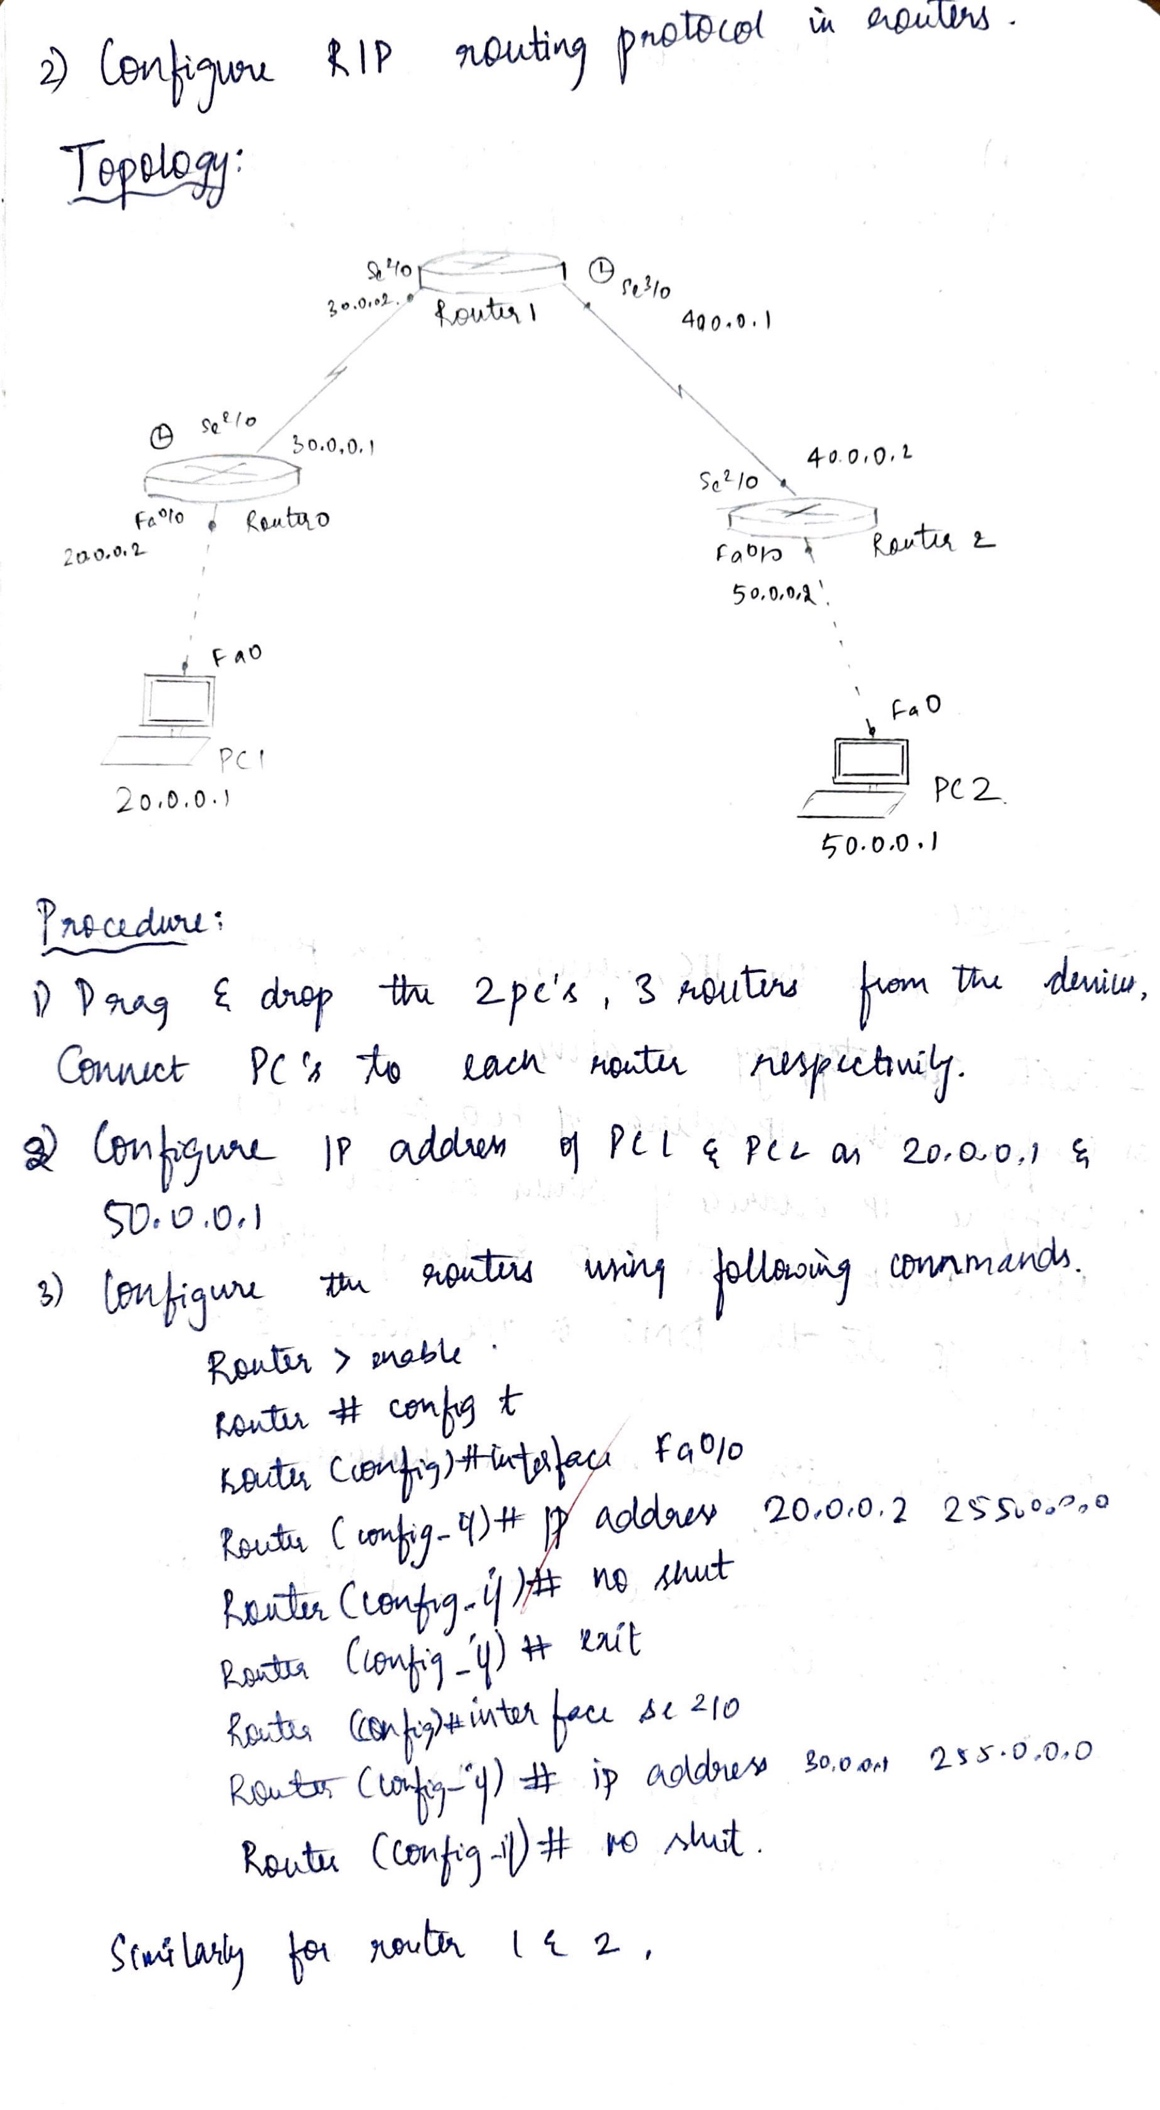 2) Configure RIP routing protocol in routers.
Topology:
Se2/0
30.0.0.2.
Router 1
Se3/0
400.0.1
Se2/0
30.0.0.1
Fa0/0
Router 0
200.0.2
Se2/0
40.0.0.2
Fa0/0
Router 2
50.0.0.2
Fa0
PC1
20.0.0.1
Fa0
PC2.
50.0.0.1
Procedure:
1) Drag & drop the 2pc's, 3 routers from the devices,
Connect PC's to each router respectively.
2) Configure IP address of PC1 & PC2 as 20.0.0.1 &
50.0.0.1
3) Configure the routers using following commands.
Router > enable.
Router # config t
Router (config)#interface Fa0/0
Router (config-if)# ip address 20.0.0.2 255.0.0.0
Router (config-if)# no shut
Router (config-if)# exit
Router (config)#interface se 2/0
Router (config-if)# ip address 30.0.0.1 255.0.0.0
Router (config-if)# no shut.
Similarly for router 1 & 2.